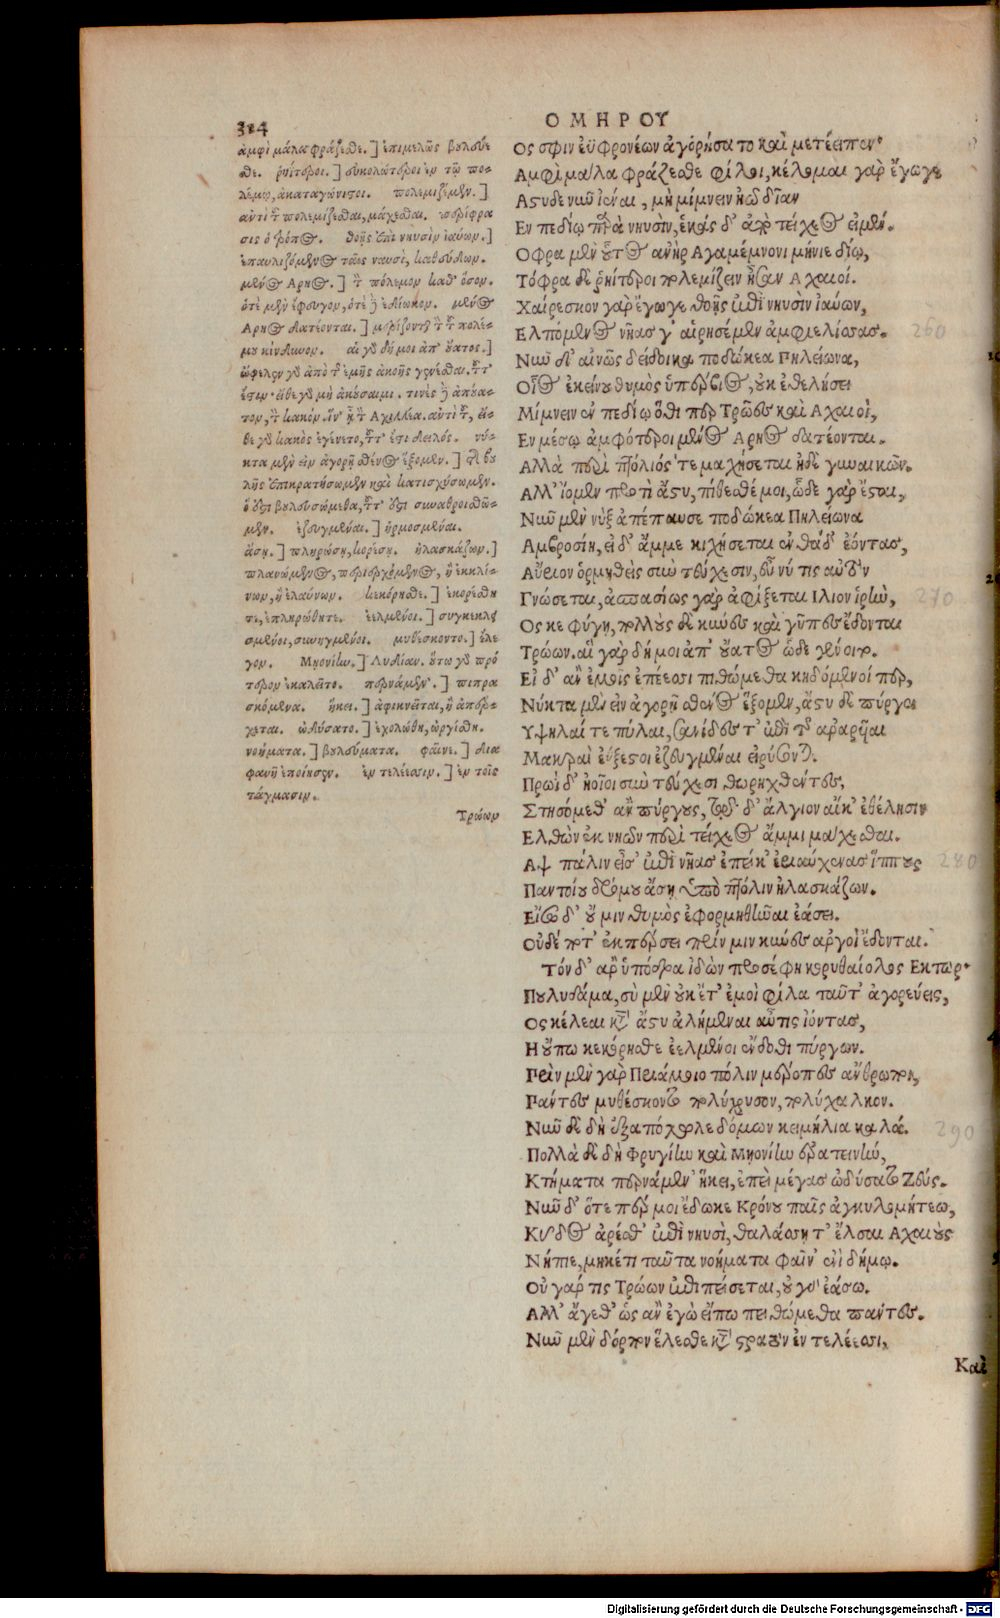 324
ΟΜΗΡΟΥ
ἀμφὶ μάλα φράζεσθε.] ἐπιμελῶς βουλεύε
σθε. ῥηίτεροι.] εὐκολώτεροι ἐν τῷ πο-
λέμῳ, ἀκαταγώνιστοι. πολεμιζέμεν.]
ἀντὶ τοῦ πολεμίζεσθαι, μάχεσθαι.
σις ὁ τρόπος. θοῇς ἐπὶ νηυσὶν ἰαύων.]
ἐπαυλιζόμενος ταῖς ναυσὶ, καθεύδων.
μένος Αρηος.] τὸν πόλεμον καθ' ὅσον.
ὁτὲ μὲν ἔφευγον, ὁτὲ δὲ ἐδίωκον. μένος
Αρηος δατέονται.] μερίζονται τὸν τοῦ πολέ-
μου κίνδυνον. αἲ γὰρ δή μοι ἀπ' οὔατος.]
ὤφελον γὰρ ἀπὸ τῆς ἐμῆς ἀκοῆς γενέσθαι. τουτ
έστιν εἴθε γὰρ μὴ ἀκούσαιμι. τινὲς δὲ ἀπούα-
τον, τὸ κακόν. ἵν' ᾖ τὸν Αχιλλέα. ἀντὶ τοῦ, εἴ-
θε γὰρ κακὸς ἐγένετο, τοῦτ' ἔστι δειλός. νύ-
κτα μὲν εἰν ἀγορῇ σθένος ἕξομεν.] τῇ βου
λῆς ἐπικρατήσωμεν καὶ κατισχύσωμεν.
ὅ ἐστι βουλευσώμεθα, τοῦτ' ἔστι συναθροισθῶ-
μεν. ἐζευγμέναι.] ἡρμοσμέναι.
ἄσῃ.] πληρώσῃ, κορέσῃ. ἠλασκάζων.]
πλανώμενος, περιερχόμενος, ἢ ἐκκλί-
νων, ἢ ἐλαύνων. κεκόρησθε.] ἐκορέσθη
τε, ἐπληρώθητε. ἐελμένοι.] συγκεκλει
σμένοι, συνηγμένοι. μυθέσκοντο.] ἔλε
γον. Μηονίην.] Λυδίαν. οὕτω γὰρ πρό
τερον ἐκαλεῖτο. περνάμεν'.] πιπρα
σκόμενα. ἥκει.] ἀφικνεῖται, ἢ ἀπέρ-
χεται. ὠδύσατο.] ἐχολώθη, ὠργίσθη.
νοήματα.] βουλεύματα. φαῖνε.] δια
φανῆ ἐποίησεν. ἐν τελέεσσιν.] ἐν τοῖς
τάγμασιν.
Τρώων
Ος σφιν ἐϋφρονέων ἀγόρησατο καὶ μετέειπεν·
Αμφὶ μάλα φράζεσθε φίλοι, κέλομαι γὰρ ἔγωγε
Αστυδε νῦν ἰέναι, μὴ μίμνειν ἠῶ δῖαν
Εν πεδίῳ παρὰ νηυσὶν, ἑκὰς δ' ἀπὸ τείχεος εἰμέν.
Οφρα μὲν οὗτος ἀνὴρ Αγαμέμνονι μήνιε δίῳ,
Τόφρα δὲ ῥηίτεροι πολεμίζειν ἦσαν Αχαιοί.
Χαίρεσκον γὰρ ἔγωγε θοῇς ἐπὶ νηυσὶν ἰαύων,
Ελπόμενος νῆας γ' αἱρησέμεν ἀμφιελίσσας. 260
Νῦν δ' αἰνῶς δείδοικα ποδώκεα Πηλείωνα,
Οἷος ἐκείνου θυμὸς ὑπέρβιος, οὐκ ἐθελήσει
Μίμνειν ἐν πεδίῳ ὅθι περ Τρῶες καὶ Αχαιοὶ,
Εν μέσῳ ἀμφότεροι μένος Αρηος δατέονται.
Αλλὰ περὶ πτόλιός τε μαχήσεται ἠδὲ γυναικῶν.
Αλλ' ἴομεν προτὶ ἄστυ, πίθεσθέ μοι, ὧδε γὰρ ἔσται,
Νῦν μὲν νὺξ ἀπέπαυσε ποδώκεα Πηλείωνα
Αμβροσίη, εἰ δ' ἄμμε κιχήσεται ἐνθάδ' ἐόντας,
Αὔριον ὁρμηθεὶς σὺν τεύχεσιν, εὖ νύ τις αὐτὸν
Γνώσεται, ἀσπασίως γὰρ ἀφίξεται Ιλιον ἱρὴν, 270
Ος κε φύγῃ, πολλοὺς δὲ κύνες καὶ γῦπες ἔδονται
Τρώων. αἲ γὰρ δή μοι ἀπ' οὔατος ὧδε γένοιτο.
Εἰ δ' ἂν ἐμοῖς ἐπέεσσι πιθώμεθα κηδόμενοί περ,
Νύκτα μὲν εἰν ἀγορῇ σθένος ἕξομεν, ἄστυ δὲ πύργοι
Υψηλαί τε πύλαι, σανίδες τ' ἐπὶ τῇς ἀραρῆαι
Μακραὶ ἐΰξεστοι ἐζευγμέναι εἰρύσονται.
Πρωῒ δ' ὑπηοῖοι σὺν τεύχεσι θωρηχθέντες,
Στησόμεθ' ἂν πύργους, τῷ δ' ἄλγιον αἴκ' ἐθέλησιν
Ελθὼν ἐκ νηῶν περὶ τείχεος ἄμμι μάχεσθαι.
Αψ πάλιν εἶσ' ἐπὶ νῆας ἐπεί κ' ἐριαύχενας ἵππους 280
Παντοίου δρόμου ἄσῃ ὑπὸ πτόλιν ἠλασκάζων.
Εἴσω δ' οὔ μιν θυμὸς ἐφορμηθῆναι ἐάσει.
Οὐδέ ποτ' ἐκπέρσει πρίν μιν κύνες ἀργοὶ ἔδονται.
Τόν δ' ἄρ' ὑπόδρα ἰδὼν προσέφη κορυθαίολος Εκτωρ·
Πουλυδάμα, σὺ μὲν οὐκ ἔτ' ἐμοὶ φίλα ταῦτ' ἀγορεύεις,
Ος κέλεαι κατὰ ἄστυ ἀλήμεναι αὖτις ἰόντας,
Η οὔπω κεκόρησθε ἐελμένοι ἔνδοθι πύργων.
Πρὶν μὲν γὰρ Πριάμοιο πόλιν μέροπες ἄνθρωποι,
Πάντες μυθέσκοντο πολύχρυσον, πολύχαλκον.
Νῦν δὲ δὴ ἐξαπόλωλε δόμων κειμήλια καλά. 290
Πολλὰ δὲ δὴ Φρυγίην καὶ Μηονίην ἐρατεινὴν,
Κτήματα περνάμεν' ἥκει, ἐπεὶ μέγας ὠδύσατο Ζεύς.
Νῦν δ' ὅτε πέρ μοι ἔδωκε Κρόνου παῖς ἀγκυλομήτεω,
Κῦδος ἀρέσθ' ἐπὶ νηυσὶ, θαλάσσῃ τ' ἔλσαι Αχαιοὺς
Νήπιε, μηκέτι ταῦτα νοήματα φαῖν' ἐνὶ δήμῳ.
Οὐ γάρ τις Τρώων ἐπιπείσεται, οὐ γὰρ ἐάσω.
Αλλ' ἄγεθ' ὡς ἂν ἐγὼ εἴπω πειθώμεθα πάντες.
Νῦν μὲν δόρπον ἕλεσθε κατὰ στρατὸν ἐν τελέεσσι,
Καὶ
Digitalisierung gefördert durch die Deutsche Forschungsgemeinschaft - DFG